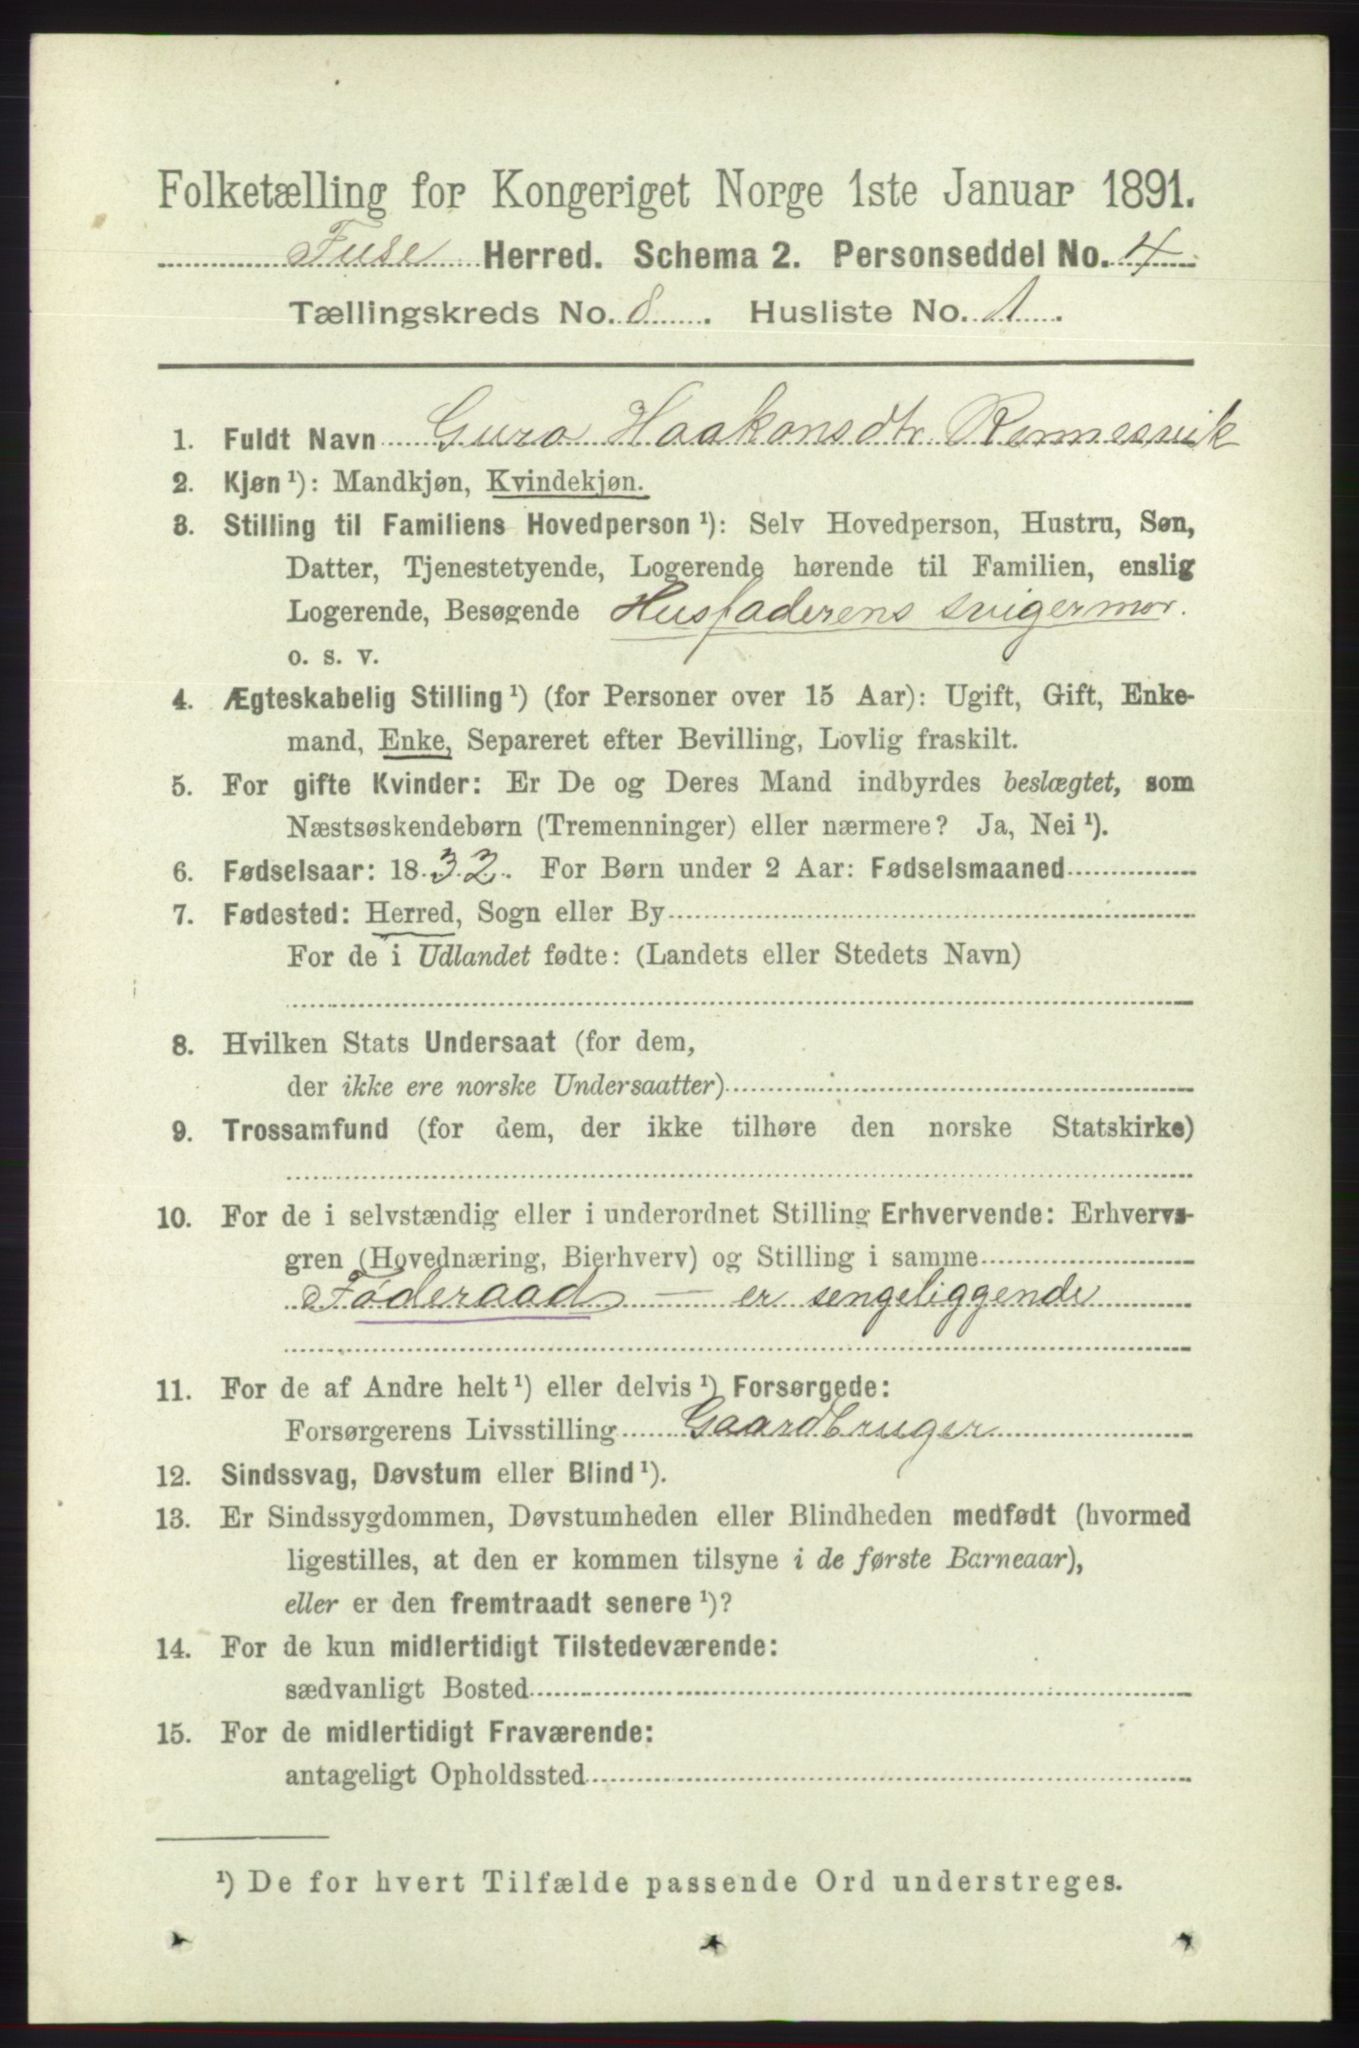 Folketælling for Kongeriget Norge 1ste Januar 1891.
Fuse Herred. Schema 2. Personseddel No. 4
Tællingskreds No. 8. Husliste No. 1.
1. Fuldt Navn Guro Haakonsdtr. Rennesvik
2. Kjøn ¹): Mandkjøn, Kvindekjøn.
3. Stilling til Familiens Hovedperson ¹): Selv Hovedperson, Hustru, Søn,
Datter, Tjenestetyende, Logerende hørende til Familien, enslig
Logerende, Besøgende Husfaderens svigermor.
o. s. v.
4. Ægteskabelig Stilling ¹) (for Personer over 15 Aar): Ugift, Gift, Enke-
mand, Enke, Separeret efter Bevilling, Lovlig fraskilt.
5. For gifte Kvinder: Er De og Deres Mand indbyrdes beslægtet, som
Næstsøskendebørn (Tremenninger) eller nærmere? Ja, Nei ¹).
6. Fødselsaar: 1832. For Børn under 2 Aar: Fødselsmaaned
7. Fødested: Herred, Sogn eller By
For de i Udlandet fødte: (Landets eller Stedets Navn)
8. Hvilken Stats Undersaat (for dem,
der ikke ere norske Undersaatter)
9. Trossamfund (for dem, der ikke tilhøre den norske Statskirke)
10. For de i selvstændig eller i underordnet Stilling Erhvervende: Erhvervs-
gren (Hovednæring, Bierhverv) og Stilling i samme
Føderaad — er sengeliggende
11. For de af Andre helt ¹) eller delvis ¹) Forsørgede:
Forsørgerens Livsstilling Gaardbruger
12. Sindssvag, Døvstum eller Blind ¹).
13. Er Sindssygdommen, Døvstumheden eller Blindheden medfødt (hvormed
ligestilles, at den er kommen tilsyne i de første Barneaar),
eller er den fremtraadt senere ¹)?
14. For de kun midlertidigt Tilstedeværende:
sædvanligt Bosted
15. For de midlertidigt Fraværende:
antageligt Opholdssted
¹) De for hvert Tilfælde passende Ord understreges.